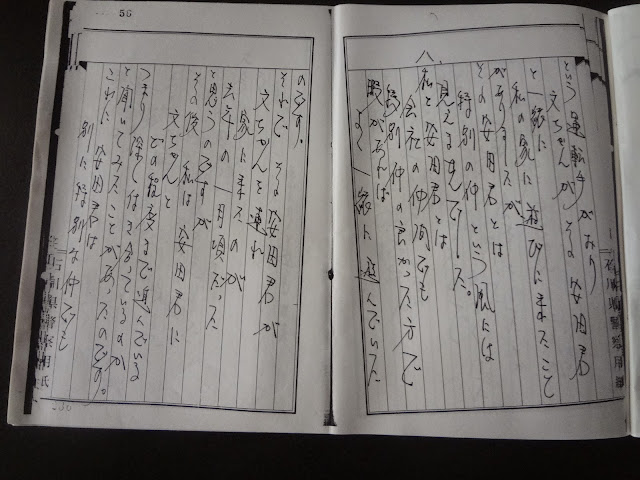 という運転手がおり
文ちゃんが その安田君
と一緒に
私の家に遊びに来たこと
がありますが
その安田君とは
特別の仲という風には
見えませんでした。
八、
私と安田君とは
会社の仲間でも
特別仲の良かった方で
暇があれば
よく一緒に遊んでいた
56
のです。
それで その安田君が
文ちゃんを連れ
家に来たのが
去年の一月頃だった
と思うのですが
その後 私は安田君に
文ちゃんと
どの程度まで進んでいる
つまり深く付き合っているのか
と聞いてみたことがあったのです。
これに 安田君は
別に特別な仲でも